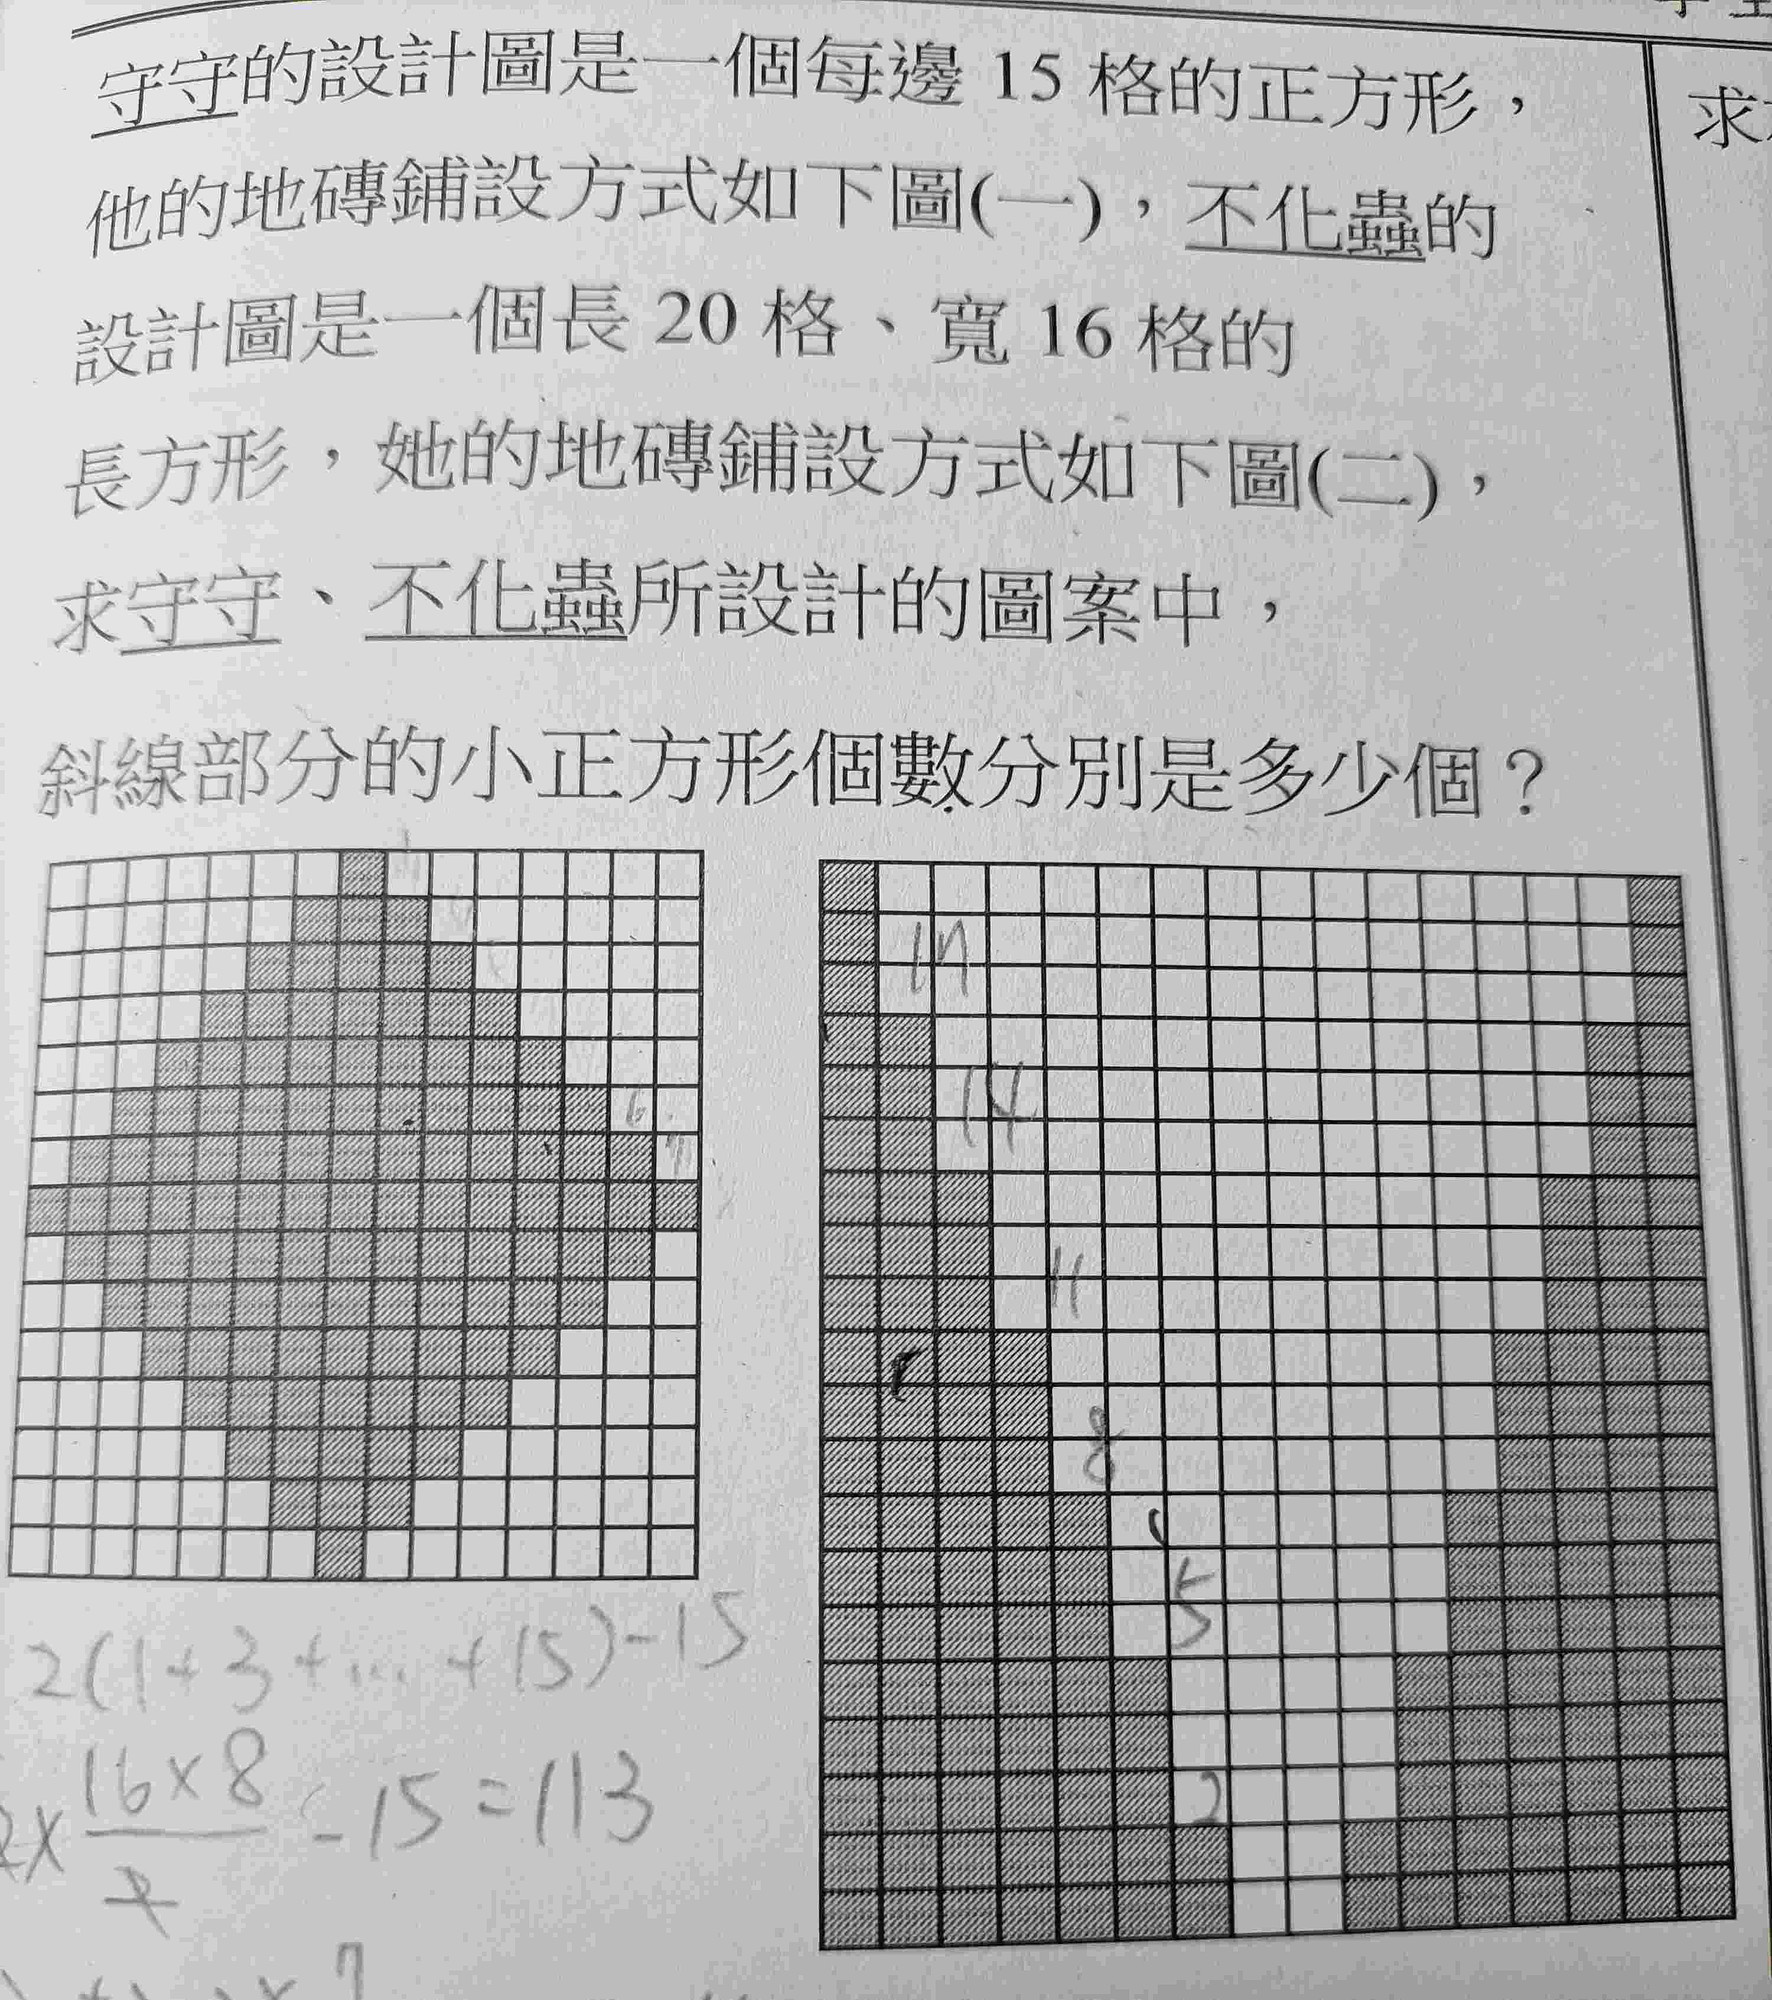 守守的設計圖是一個每邊 15 格的正方形，
他的地磚鋪設方式如下圖(一)，不化蟲的
設計圖是一個長 20 格、寬 16 格的
長方形，她的地磚鋪設方式如下圖(二)，
求守守、不化蟲所設計的圖案中，
斜線部分的小正方形個數分別是多少個？
求
17
14
6
11
8
5
2
2(1+3+...+15)-15
2×16×8/2-15=113